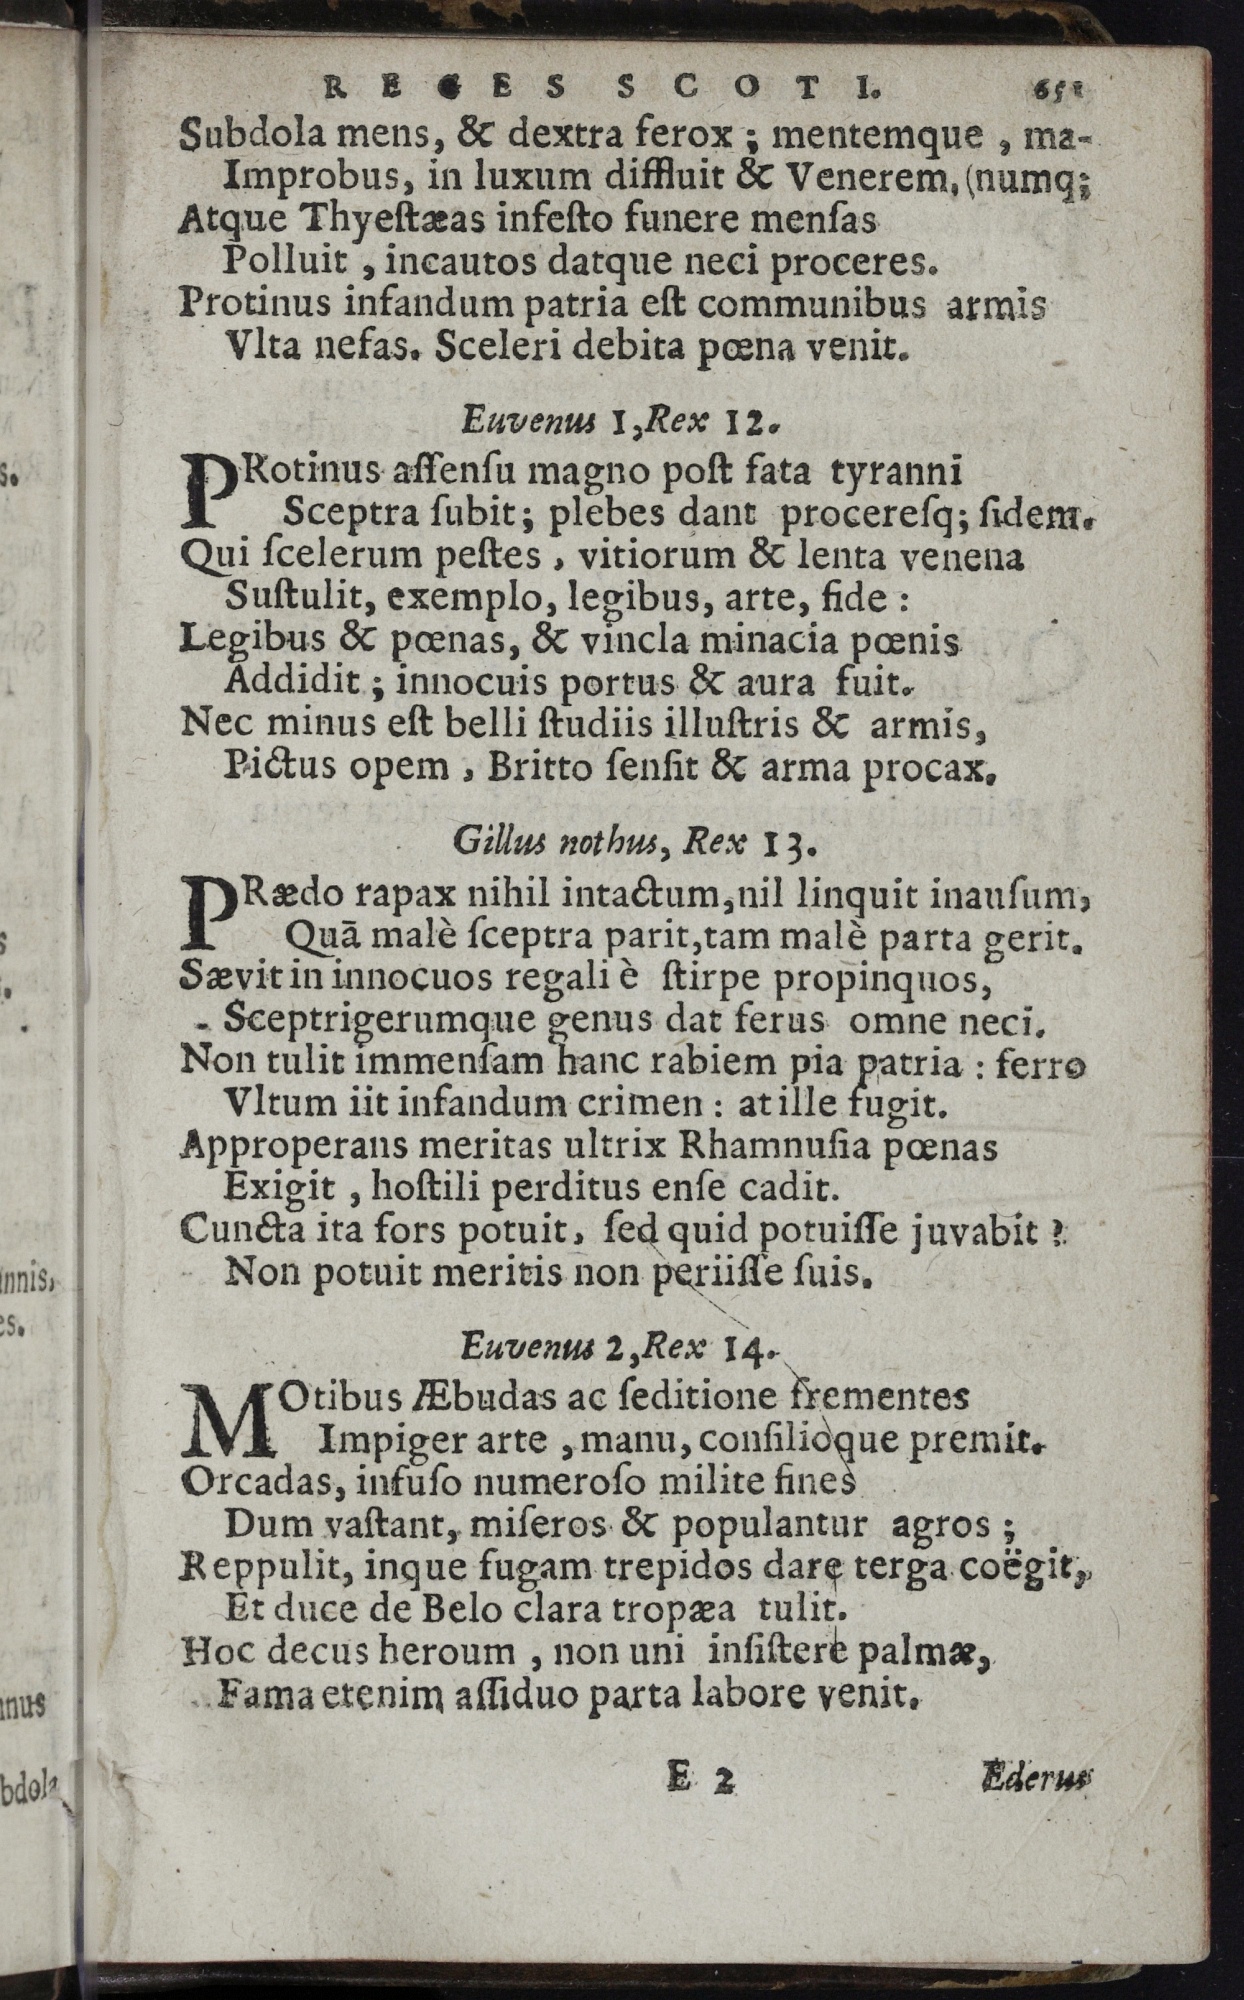 REGES SCOTI. 651
Subdola mens, & dextra ferox; mentemque, ma-
Improbus, in luxum diffluit & Venerem, (numq;
Atque Thyeſtæas infeſto funere menſas
Polluit, incautos datque neci proceres.
Protinus infandum patria eſt communibus armis
Vlta nefas. Sceleri debita pœna venit.
Euvenus 1, Rex 12.
PRotinus aſſenſu magno poſt fata tyranni
Sceptra ſubit; plebes dant procereſq; fidem.
Qui ſcelerum peſtes, vitiorum & lenta venena
Suſtulit, exemplo, legibus, arte, fide:
Legibus & pœnas, & vincla minacia pœnis
Addidit; innocuis portus & aura fuit.
Nec minus eſt belli ſtudiis illuſtris & armis,
Pictus opem, Britto ſenſit & arma procax.
Gillus nothus, Rex 13.
PRædo rapax nihil intactum, nil linquit inauſum,
Quā malè ſceptra parit, tam malè parta gerit.
Sævit in innocuos regali è ſtirpe propinquos,
Sceptrigerumque genus dat ferus omne neci.
Non tulit immenſam hanc rabiem pia patria: ferro
Vltum iit infandum crimen: at ille fugit.
Approperans meritas ultrix Rhamnuſia pœnas
Exigit, hoſtili perditus enſe cadit.
Cuncta ita fors potuit, ſed quid potuiſſe juvabit?
Non potuit meritis non periiſſe ſuis.
Euvenus 2, Rex 14.
MOtibus Æbudas ac ſeditione frementes
Impiger arte, manu, conſilioque premit.
Orcadas, infuſo numeroſo milite fines
Dum vaſtant, miſeros & populantur agros;
Reppulit, inque fugam trepidos dare terga coëgit,
Et duce de Belo clara tropæa tulit.
Hoc decus heroum, non uni inſiſtere palmæ,
Fama etenim aſſiduo parta labore venit.
E 2 Ederus